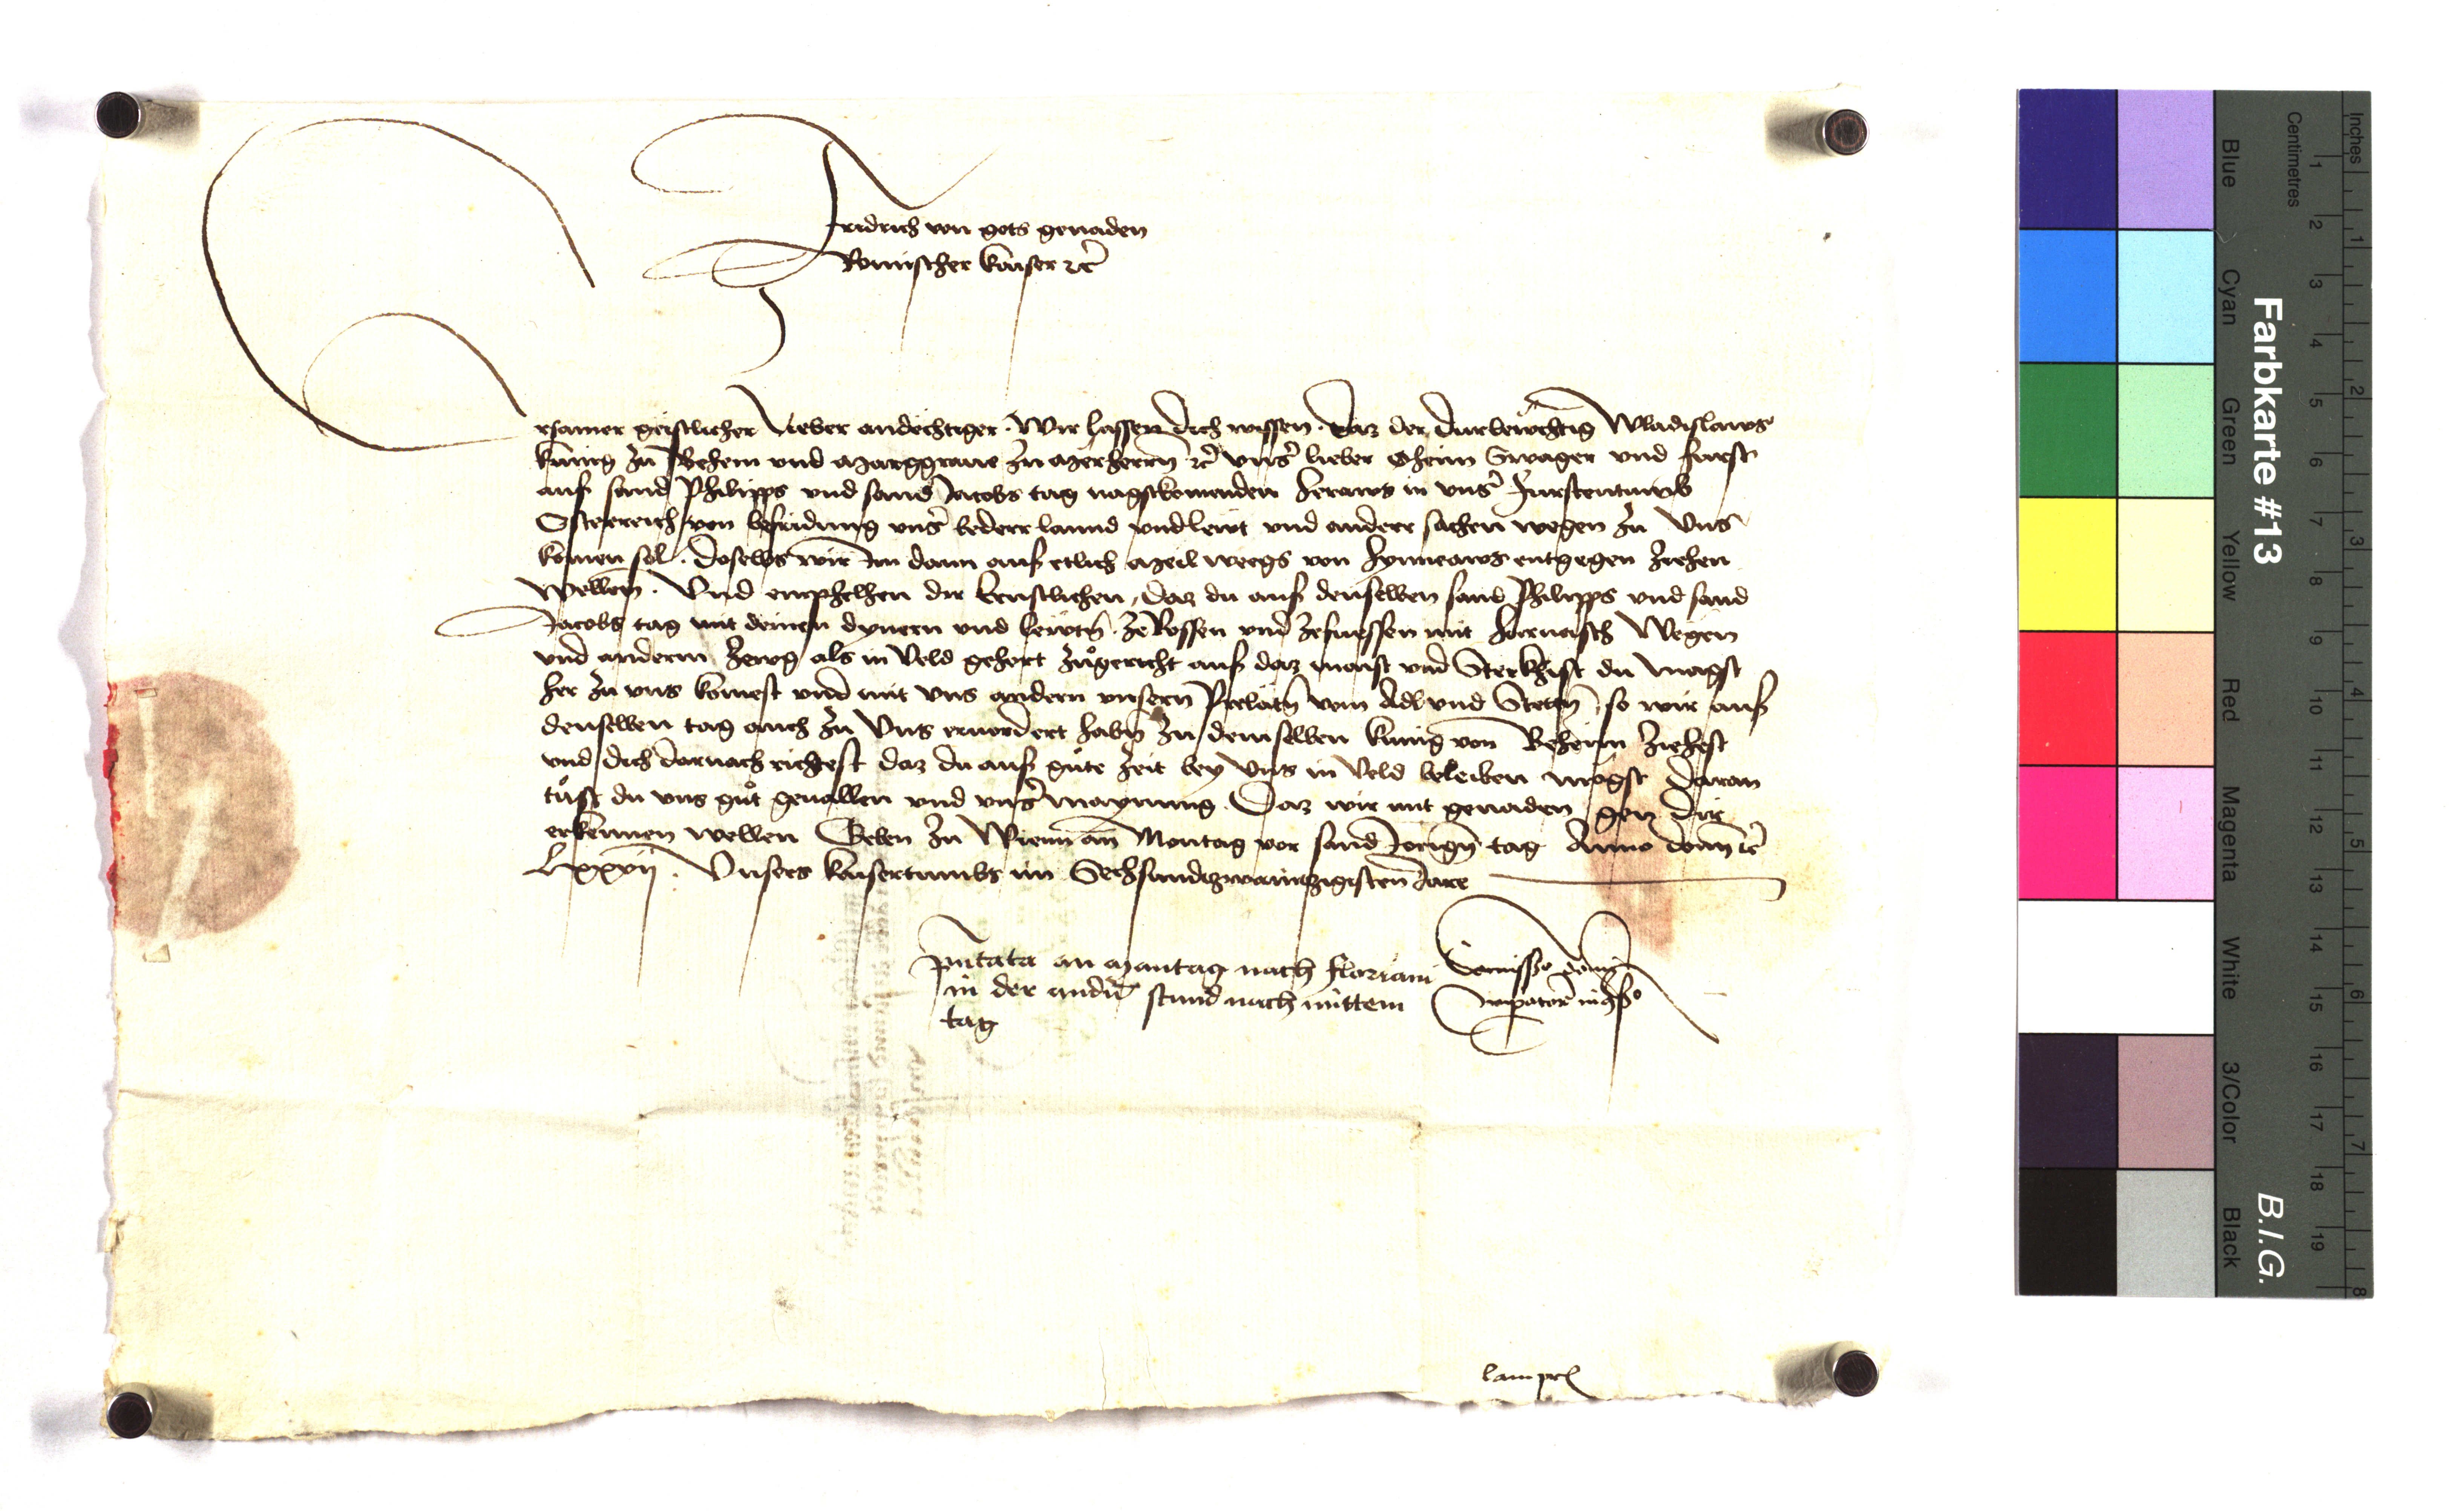 Fridrich von gots genaden
Romischer kaiser etc
Ersamer geistlicher lieber andechtiger. Wir lassen dich wissen. daz der durleuchtig Wladislaws
kunig zu Behem und Marggraue zu Merherrn etc unser lieber Oheim Swager und furst
auf sand Philipps und sand Jacobs tag nagstkomenden heraws in unser furstentumb
Osterreich von befridung unser beder lannd und lewt und anderr sachen wegen zu Uns
komen sol. Doselbs wir Im dann auf etlich Meil weegs von hynneaws entgegen ziehen
Wellen. Und emphelhen dir ernstlichen, daz du auf denselben sand Philipps und sand
Jacobs tag mit deinen dynern und lewtn. ze Rossen und ze fuessen mit harnasch Wegen
und anderm zewg als in Veld gehort zugericht auf daz maist und Sterkhist du magst
her zu uns komest und mit uns andern unsern Prelatn vom Adl und Stetn, so wir auf
denselben tag auch zu Uns eruordert habn zu demselben kunig von Beheim ziehest
und dich darnach richtest daz du auf gute zeit bey Uns in Veld beleiben mogst daran
tust du uns gut geuallen und unser maynung. Daz wir mit genaden gen dir
erkennen wellen Geben zu Wienn am Montag vor sand Jorign tag Anno domini etc
Lxxvij. Unsers kaisertumbs im Sechsundzwaintzigisten Jare
Pntata an Mantag nach floriani
in der andern stund nach mittem
tag
Commissio domini
imperatoris in consilio
Farbkarte #13
B.I.G.
Inches
Centimetres
Blue
Cyan
Green
Yellow
Red
Magenta
White
3/Color
Black
1 2 3 4 5 6 7 8 9 10 11 12 13 14 15 16 17 18 19
1 2 3 4 5 6 7 8